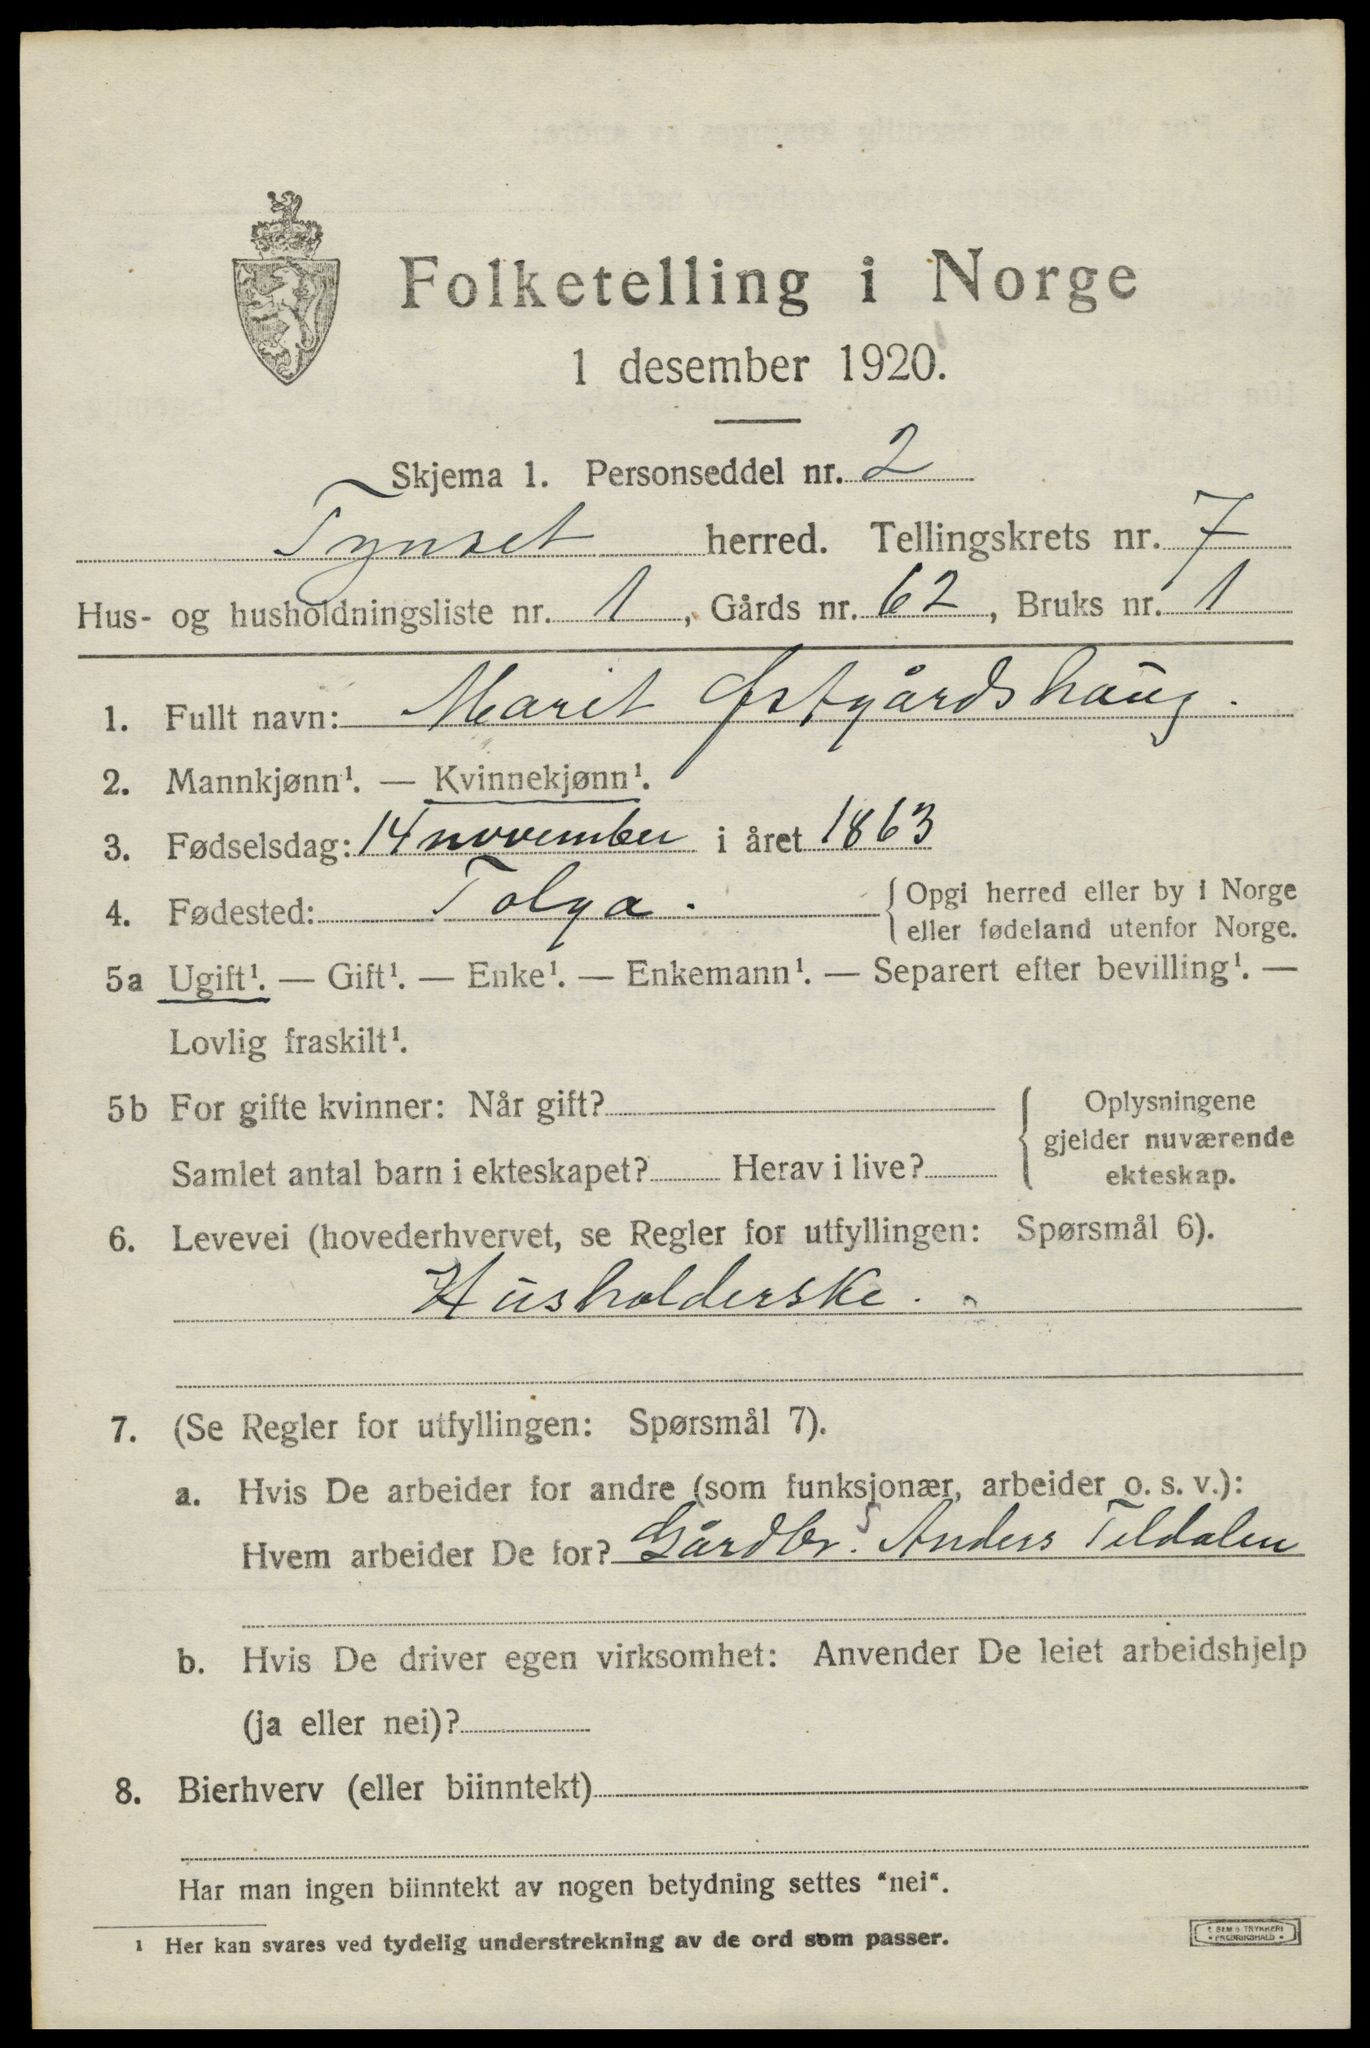 Folketelling i Norge
1 desember 1920.
Skjema 1. Personseddel nr. 2
Tynset herred. Tellingskrets nr. 7
Hus- og husholdningsliste nr. 1, Gårds nr. 62, Bruks nr. 1
1. Fullt navn: Marit Østgårdshaug.
2. Mannkjønn¹. — Kvinnekjønn¹.
3. Fødselsdag: 14 november i året 1863
4. Fødested: Tolga. { Opgi herred eller by i Norge
eller fødeland utenfor Norge.
5a Ugift¹. — Gift¹. — Enke¹. — Enkemann¹. — Separert efter bevilling¹. —
Lovlig fraskilt¹.
5b For gifte kvinner: Når gift? { Oplysningene
gjelder nuværende
Samlet antal barn i ekteskapet? Herav i live? ekteskap.
6. Levevei (hovederhvervet, se Regler for utfyllingen: Spørsmål 6).
Husholderske.
7. (Se Regler for utfyllingen: Spørsmål 7).
a. Hvis De arbeider for andre (som funksjonær, arbeider o. s. v.):
Hvem arbeider De for? Gårdbr. Anders Tildalen
b. Hvis De driver egen virksomhet: Anvender De leiet arbeidshjelp
(ja eller nei)?
8. Bierhverv (eller biinntekt)
Har man ingen biinntekt av nogen betydning settes "nei".
¹ Her kan svares ved tydelig understrekning av de ord som passer.
TRYKKERI
FREDRIKSHALD